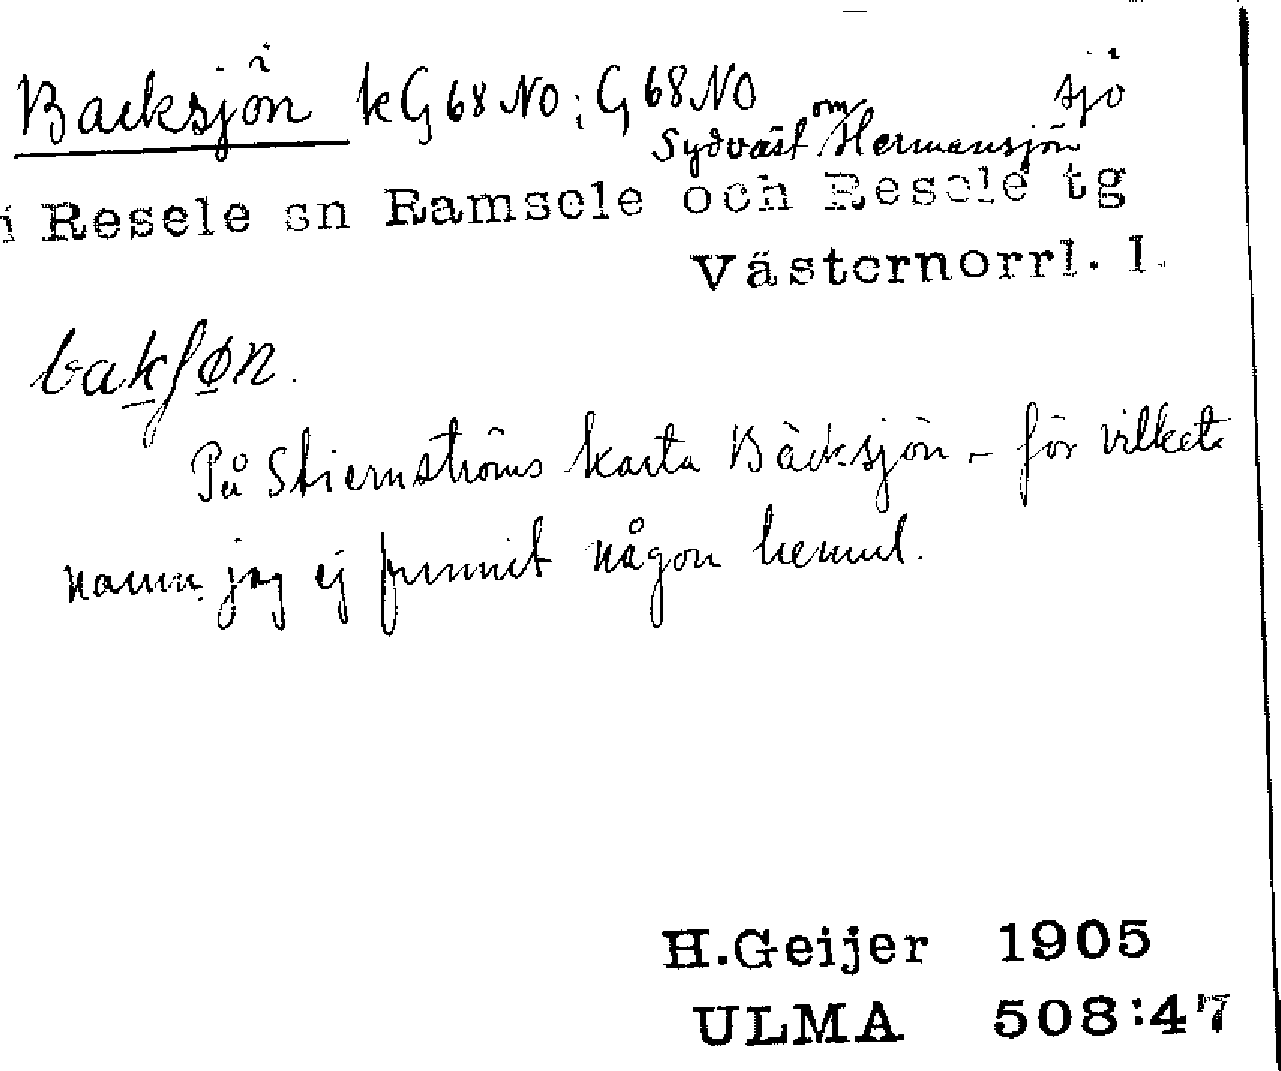 Backsjön kG68NO; G68NO sjö
Sydväst om Hermansjön
i Resele sn Ramsele och Resele tg
Västernorrl. l.
bakʃøn.
På Stiernströms karta Bäcksjön – för vilket
namn jag ej funnit någon hemul.
H.Geijer 1905
ULMA 508:47